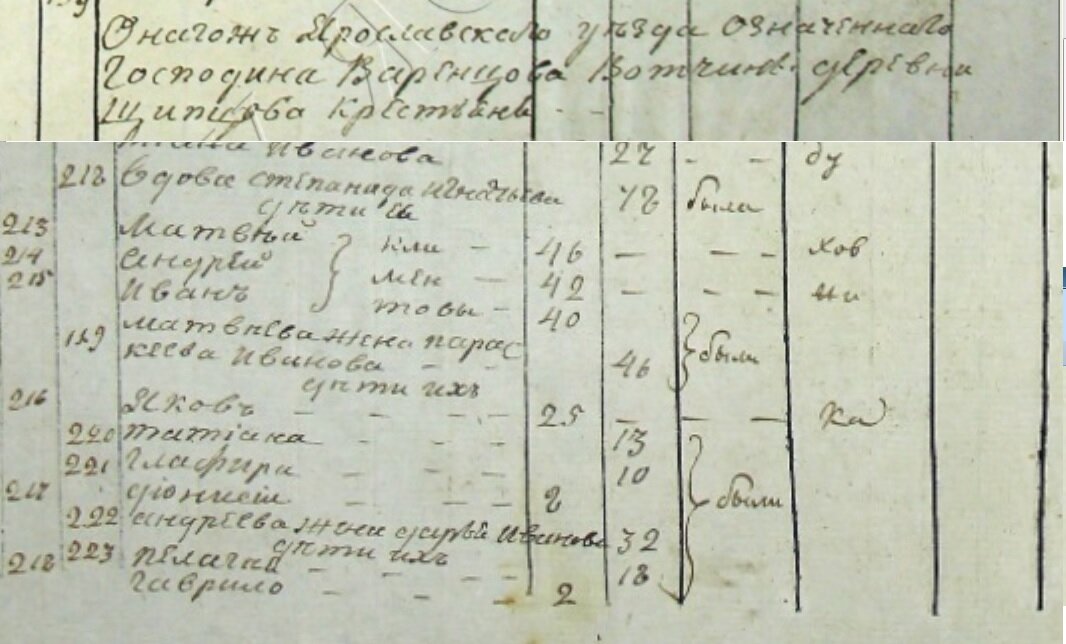 Онагожъ Ярославскаго уѣзда означеннаго
Господина Варенцова вотчине деревни
Щипцова крестьяне - -
Иванова 27 - - бу
218 вдова степанида игнатьева 78 была
дѣти ее
213 Матвѣй кли - 46 - - - хов
214 Андрей мен - 42 - - - ни
215 Иванъ товы - 40
219 матвѣева жена парас
кева Иванова - - 46 были
дѣти ихъ
216 Яковъ - - - - 25 - - - ка
220 татiана - - - - 13
221 глафира - - - 10
217 дiонисiй - - - 2 были
222 андреева жена дарья Иванова 32
дѣти ихъ
223 пелагея - - - - 18
218 гаврило - - - 2